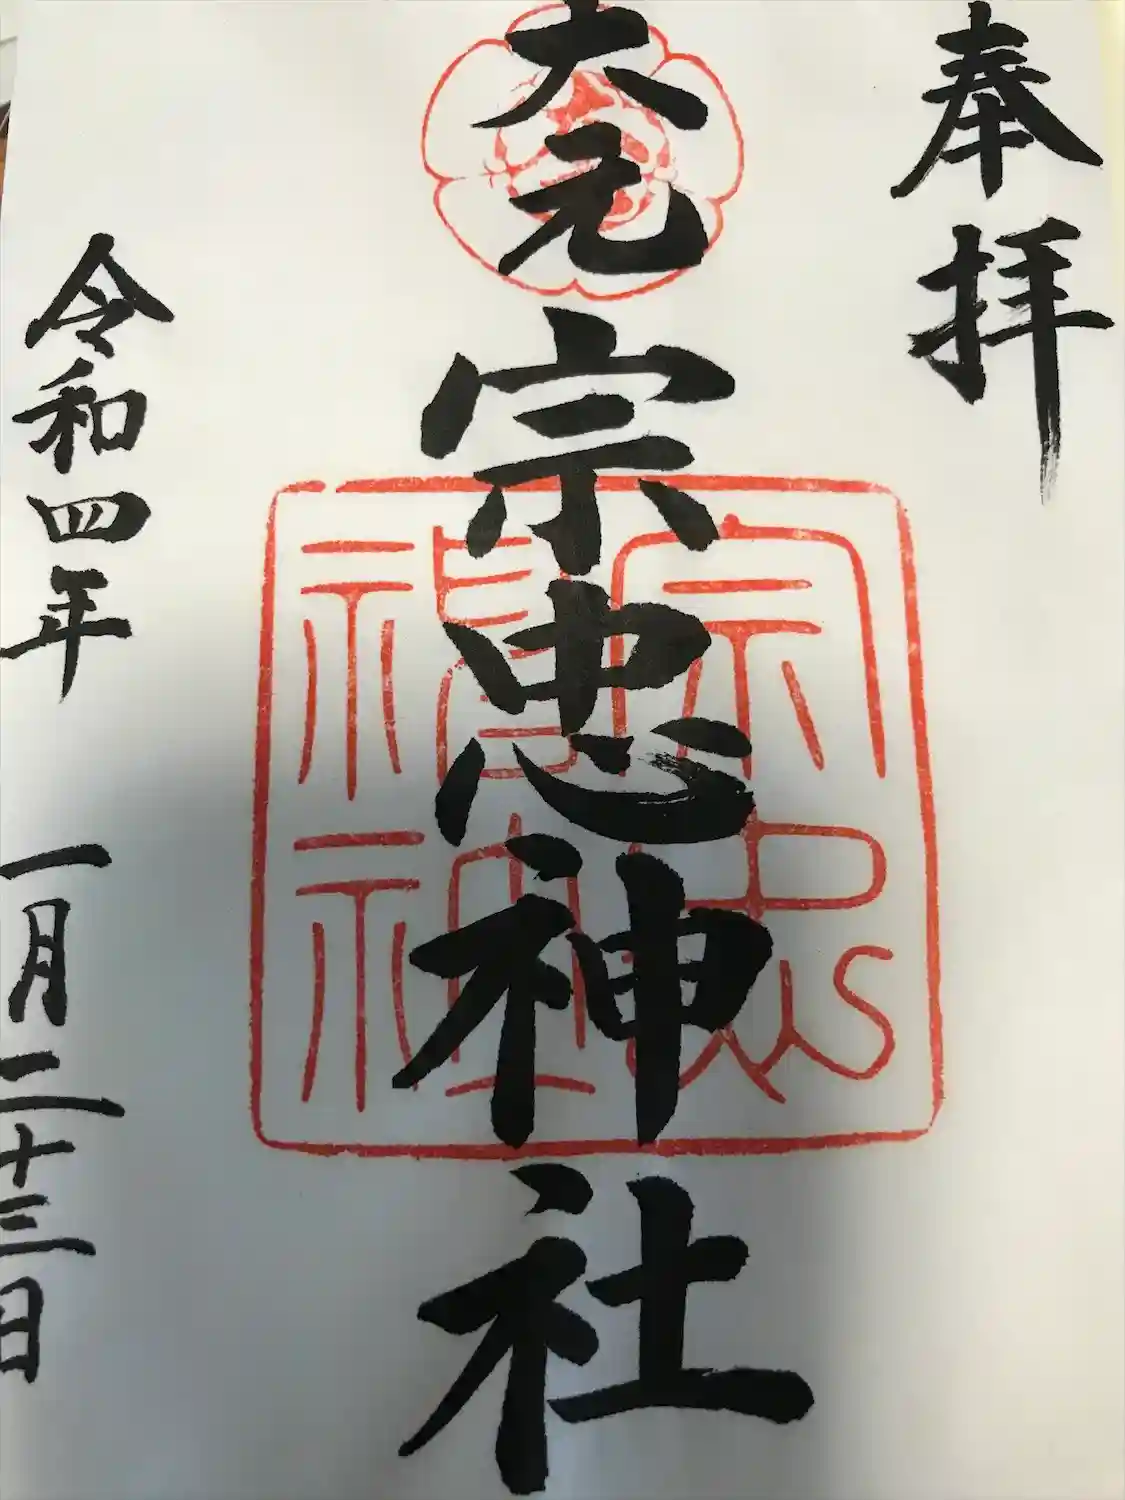 奉拝
大元 宗忠神社
宗忠
神社
令和四年 一月二十三日